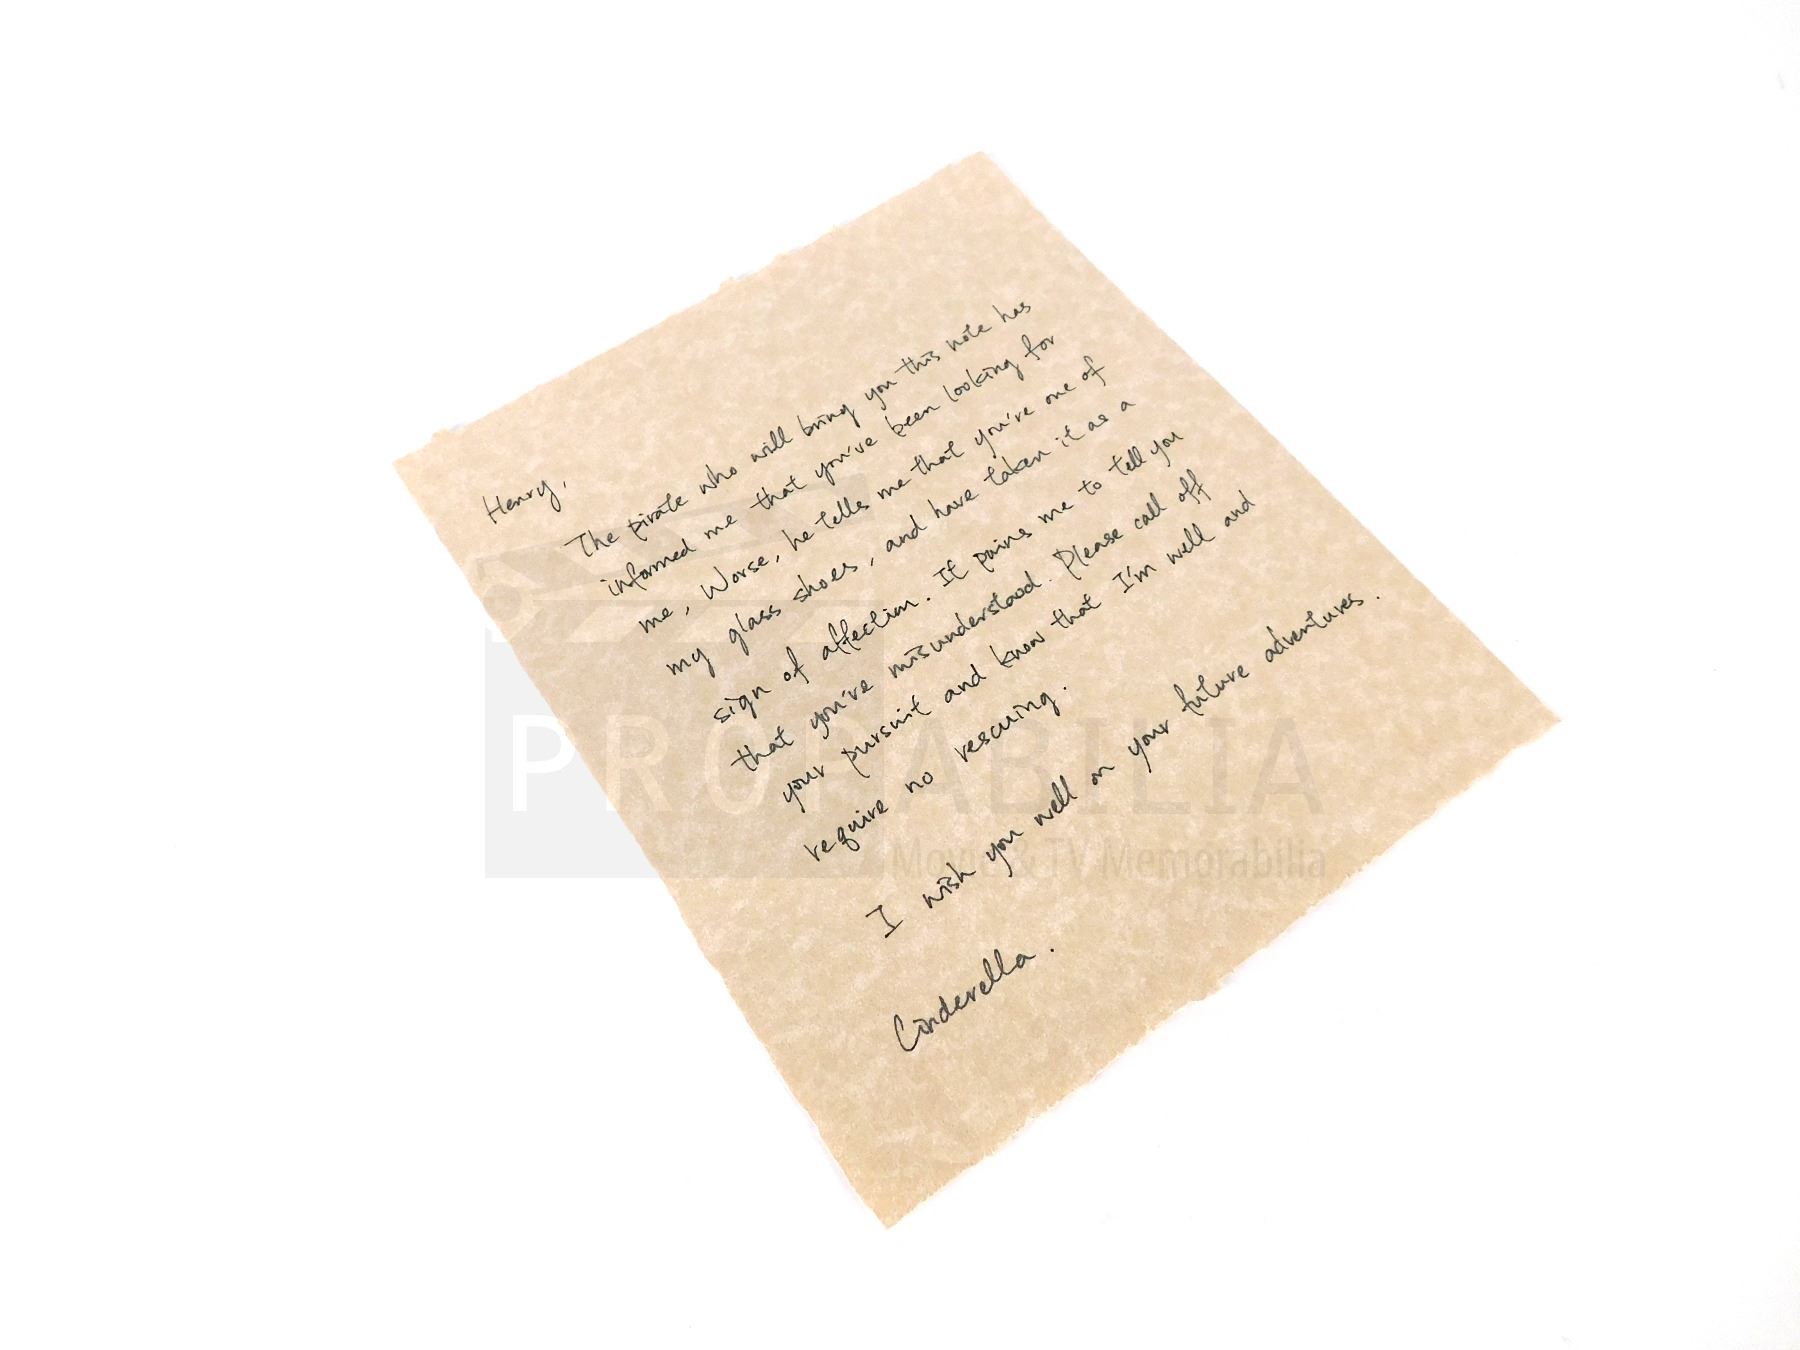 Henry,
The pirate who will bring you this note has
informed me that you've been looking for
me, Worse, he tells me that you're one of
my glass shoes, and have taken it as a
sign of affection. It pains me to tell you
that you've misunderstood. Please call off
your pursuit and know that I'm well and
require no rescuing.
I wish you well on your future adventures.
Cinderella.
PROPABILIA
Movie & TV Memorabilia